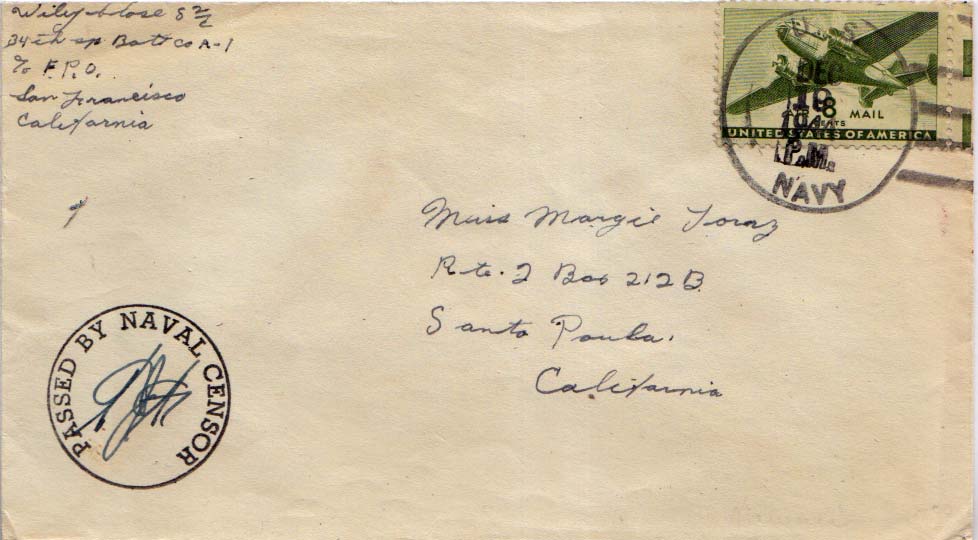 Wily close S 2/c
34th sp Batt co A-1
c/o F.P.O.
San Francisco
California
U.S.
DEC
18
P.M.
NAVY
AIR MAIL
8
CENTS
UNITED STATES OF AMERICA
Miss Margie
Rte. 2 Box 212B
Santa Paula.
California
PASSED BY NAVAL CENSOR